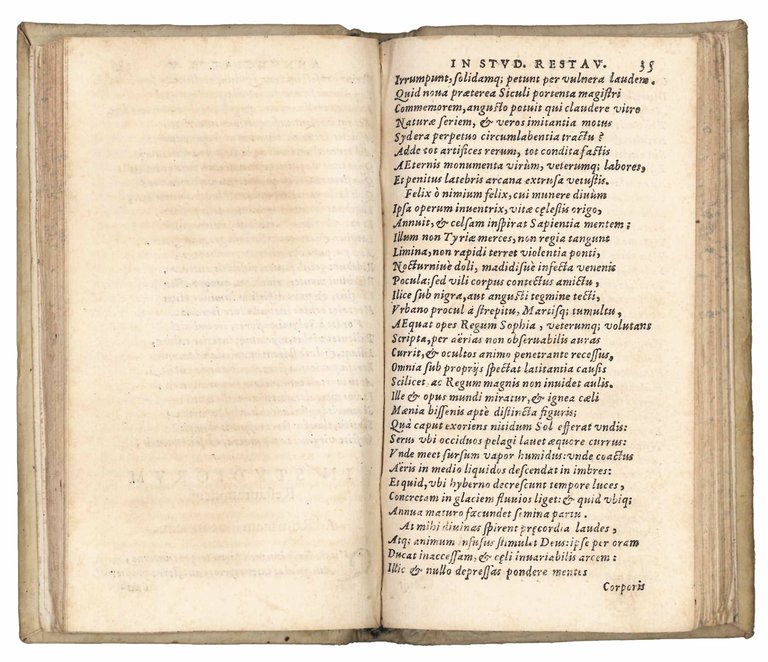 IN STVD. RESTAV. 35
Irrumpunt, solidamq; petunt per vulnera laudem.
Quid noua præterea Siculi portenta magistri
Commemorem, angusto potuit qui claudere vitro
Naturæ seriem, & veros imitantia motus
Sydera perpetuo circumlabentia tractu?
Adde tot artifices rerum, tot condita factis
AEternis monumenta virùm, veterumq; labores,
Et penitus latebris arcana extrusa vetustis.
Felix ò nimium felix, cui munere diuùm
Ipsa operum inuentrix, vitæ cęlestis origo,
Annuit, & celsam inspirat Sapientia mentem:
Illum non Tyriæ merces, non regia tangunt
Limina, non rapidi terret violentia ponti,
Nocturniuè doli, madidisuè infecta venenis
Pocula: sed vili corpus contectus amictu,
Ilice sub nigra, aut angusti tegmine tecti,
Vrbano procul à strepitu, Martisq; tumultu,
AEquat opes Regum Sophia, veterumq; volutans
Scripta, per aërias non obseruabilis auras
Currit, & ocultos animo penetrante recessus,
Omnia sub proprijs spectat latitantia causis
Scilicet ac Regum magnis non inuidet aulis.
Ille & opus mundi miratur, & ignea cæli
Mænia bissenis aptè distincta figuris;
Quà caput exoriens nitidum Sol efferat vndis:
Serus vbi occiduos pelagi lauet æquore currus:
Vnde meet sursum vapor humidus: vnde coactus
Aëris in medio liquidos descendat in imbres:
Et quid, vbi hyberno decrescunt tempore luces,
Concretam in glaciem fluuios liget: & quid vbiq;
Annua maturo fæcundet semina partu.
At mihi diuinas spirent pręcordia laudes,
Atq; animum nfusus stimulet Deus: ipse per oram
Ducat inaccessam, & cęli inuariabilis arcem:
Illic & nullo depressas pondere mentes
Corporis